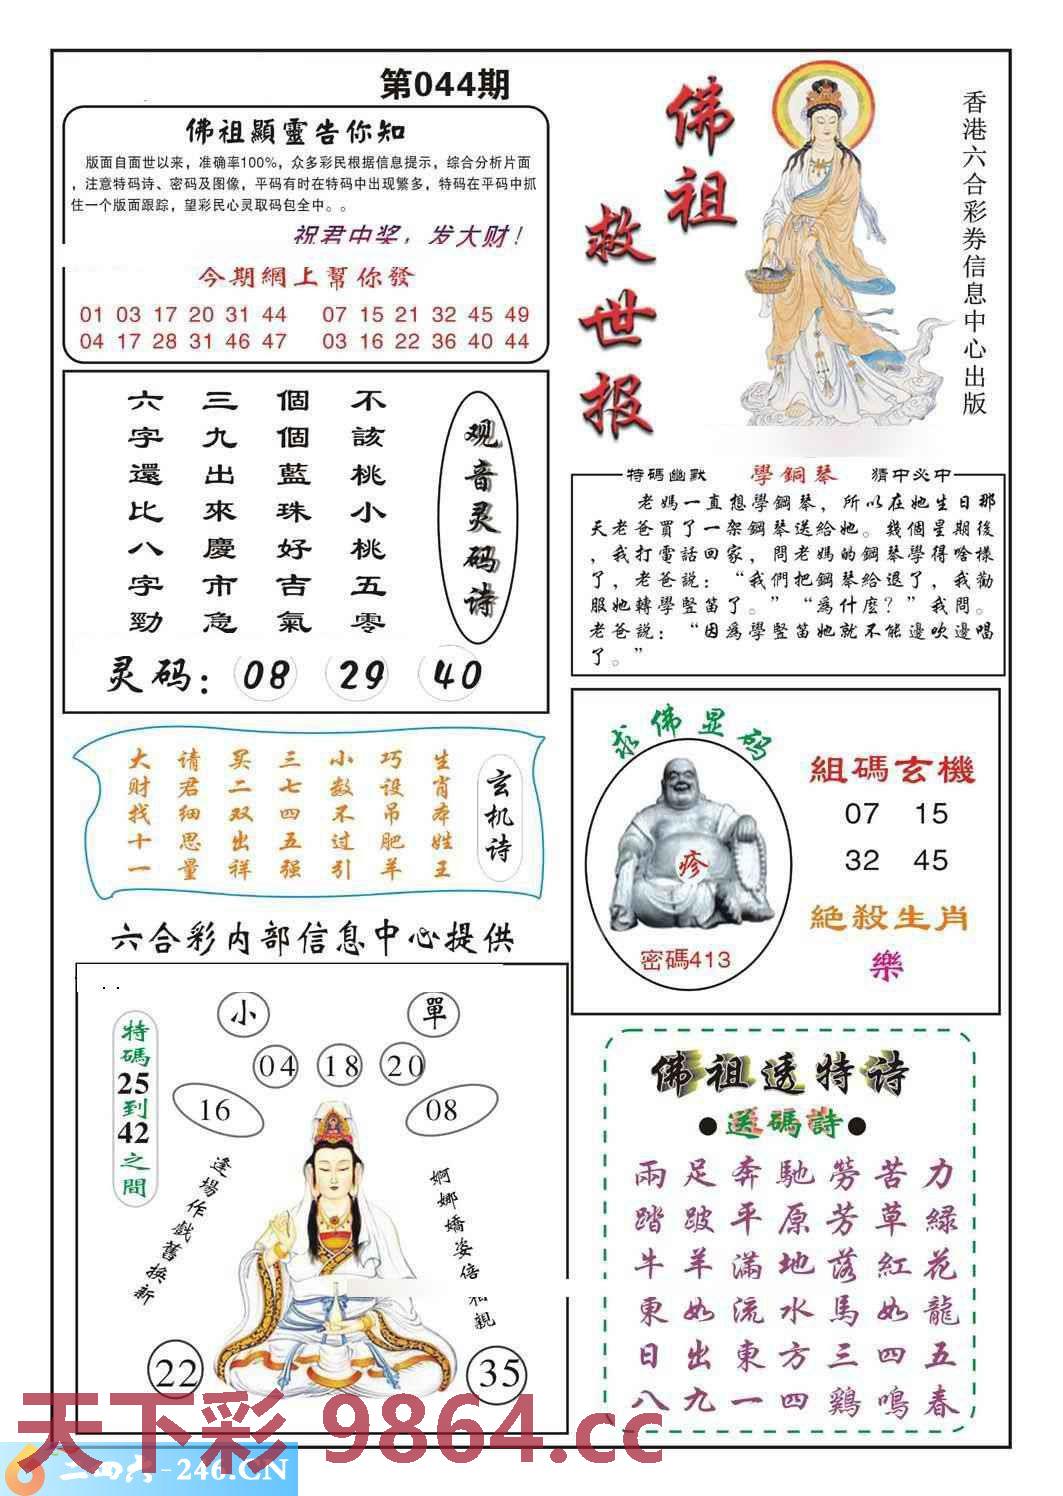 第044期
佛祖顯靈告你知
版面自面世以来，准确率100%，众多彩民根据信息提示，综合分析片面
，注意特码诗、密码及图像，平码有时在特码中出现繁多，特码在平码中抓
住一个版面跟踪，望彩民心灵取码包全中。。
祝君中奖，发大财！
今期網上幫你發
01 03 17 20 31 44 07 15 21 32 45 49
04 17 28 31 46 47 03 16 22 36 40 44
佛祖
救世报
香港六合彩券信息中心出版
观音灵码诗
不該桃小桃五零
個個藍珠好吉氣
三九出來慶市急
六字還比八字勁
灵码： 08 29 40
特碼幽默 學鋼琴 猜中必中
老媽一直想學鋼琴，所以在她生日那
天老爸買了一架鋼琴送給她。幾個星期後
，我打電話回家，問老媽的鋼琴學得啥樣
了，老爸説：“我們把鋼琴給退了，我勸
服她轉學豎笛了。”“爲什麽？”我問。
老爸説：“因爲學豎笛她就不能邊吹邊唱
了。”
玄机诗
生肖本姓王
巧设吊肥羊
小数不过引
三七四五强
买二双出祥
请君细思量
大财找十一
求佛显码
疹
密碼413
組碼玄機
07 15
32 45
絶殺生肖
樂
六合彩内部信息中心提供
特碼25到42之間
小 單
04 18 20
16 08
逢場作戲舊换新
婀娜嬌姿倍相親
22 35
佛祖透特诗
●送碼詩●
兩足奔馳勞苦力
踏跛平原芳草緑
牛羊滿地落紅花
東如流水馬如龍
日出東方三四五
八九一四鷄鳴春
天下彩 9864.cc
二四六-246.CN